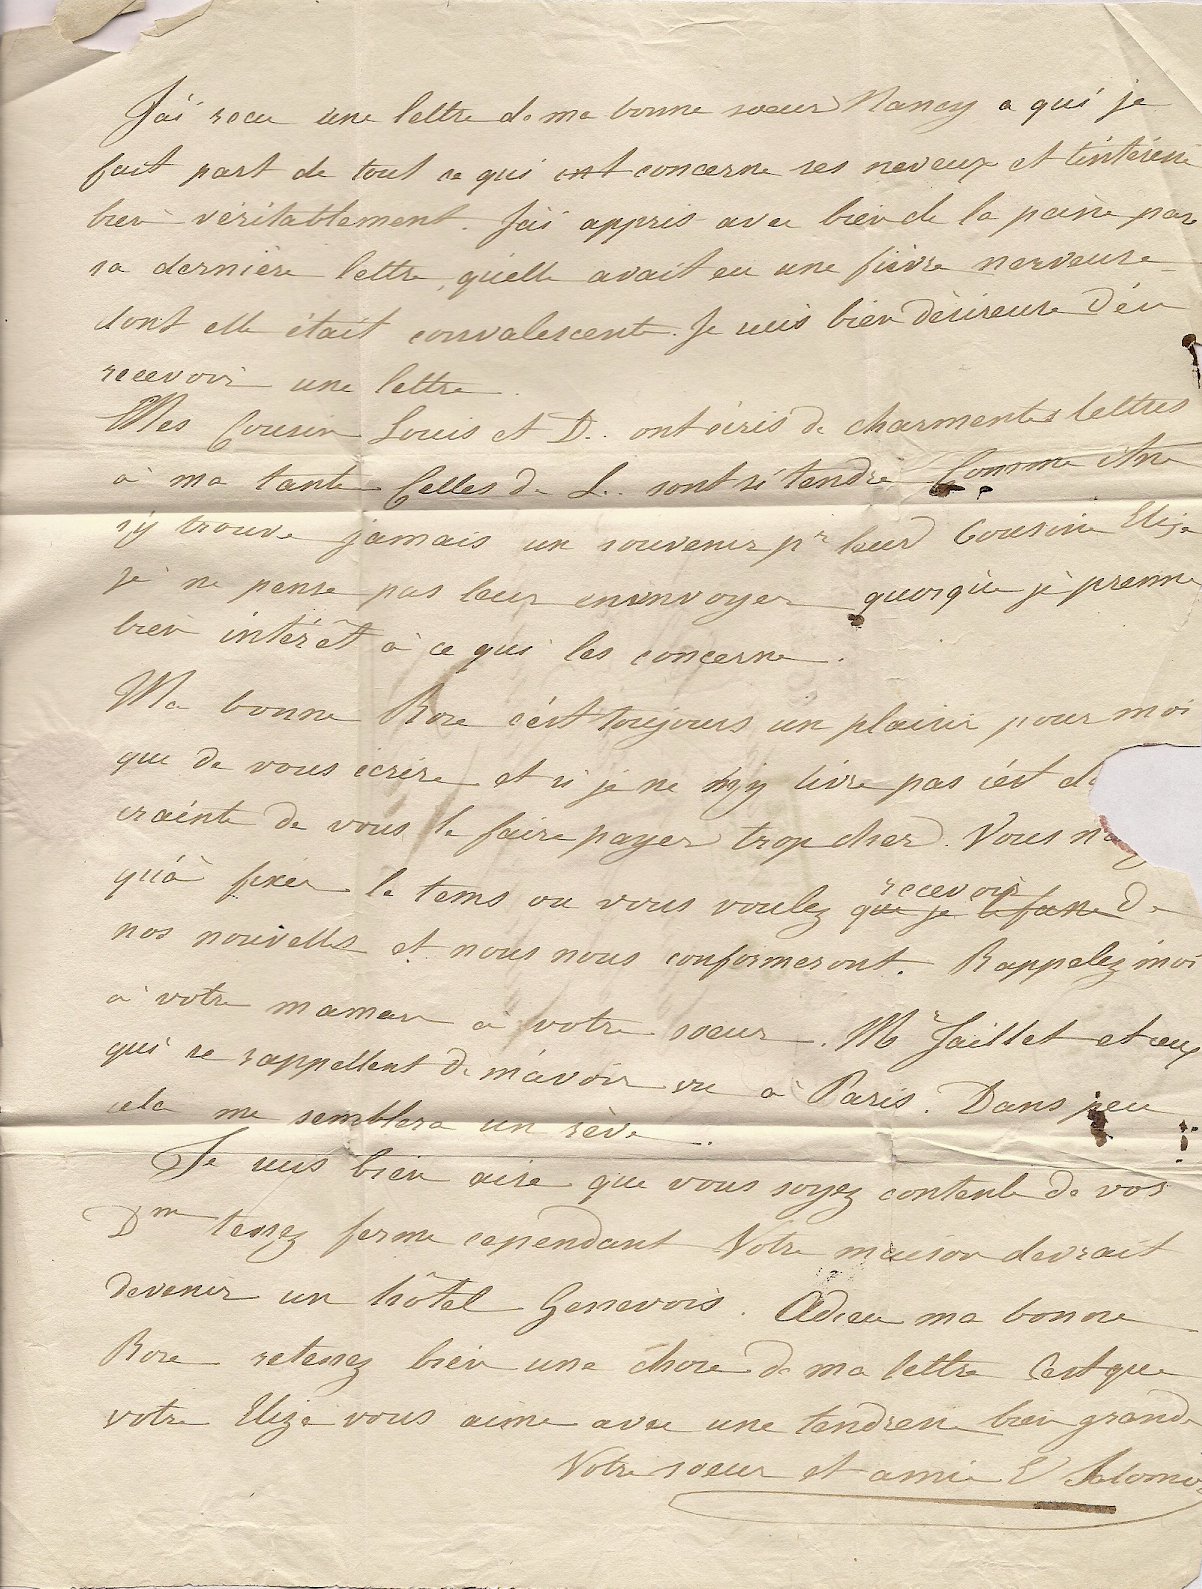 J'ai recu une lettre de ma bonne soeur Nancy a qui je
fait part de tout ce qui concerne ses neveux et
bien véritablement. J'ai appris avec bien de la peine par
sa dernière lettre qu'elle avait eu une fièvre nerveuse
dont elle était convalescente. Je suis bien désireuse d'en
recevoir une lettre.
Mes Cousin Louis et D.. ont écris de charmentes lettres
à ma tante Celles de L.. sont si tendre Comme il ne
s'y trouve jamais un souvenir pr leur Cousine Eliza
je ne pense pas leur en envoyer quoique je prenne
bien intérêt à ce qui les concerne.
Ma bonne Rose c'est toujours un plaisir pour moi
que de vous écrire et si je ne m'y livre pas c'est de
crainte de vous le faire payer trop cher. Vous n'a
qu'à fixer le tems ou vous voulez que je le fasse recevoir de
nos nouvelles et nous nous conformeront. Rappelez moi
à votre maman à votre soeur. Mr Jaillet et ceux
qui se rappellent de m'avoir vu à Paris. Dans peu
cela me semblera un rêve.
Je suis bien aise que vous soyez contente de vos
Dm tenez ferme cependant Votre maison devrait
devenir un hôtel Genevois. Adieu ma bonne
Rose retenez bien une chose de ma lettre C'est que
votre Eliza vous aime avec une tendresse bien grande
Votre soeur et amie E Salomon